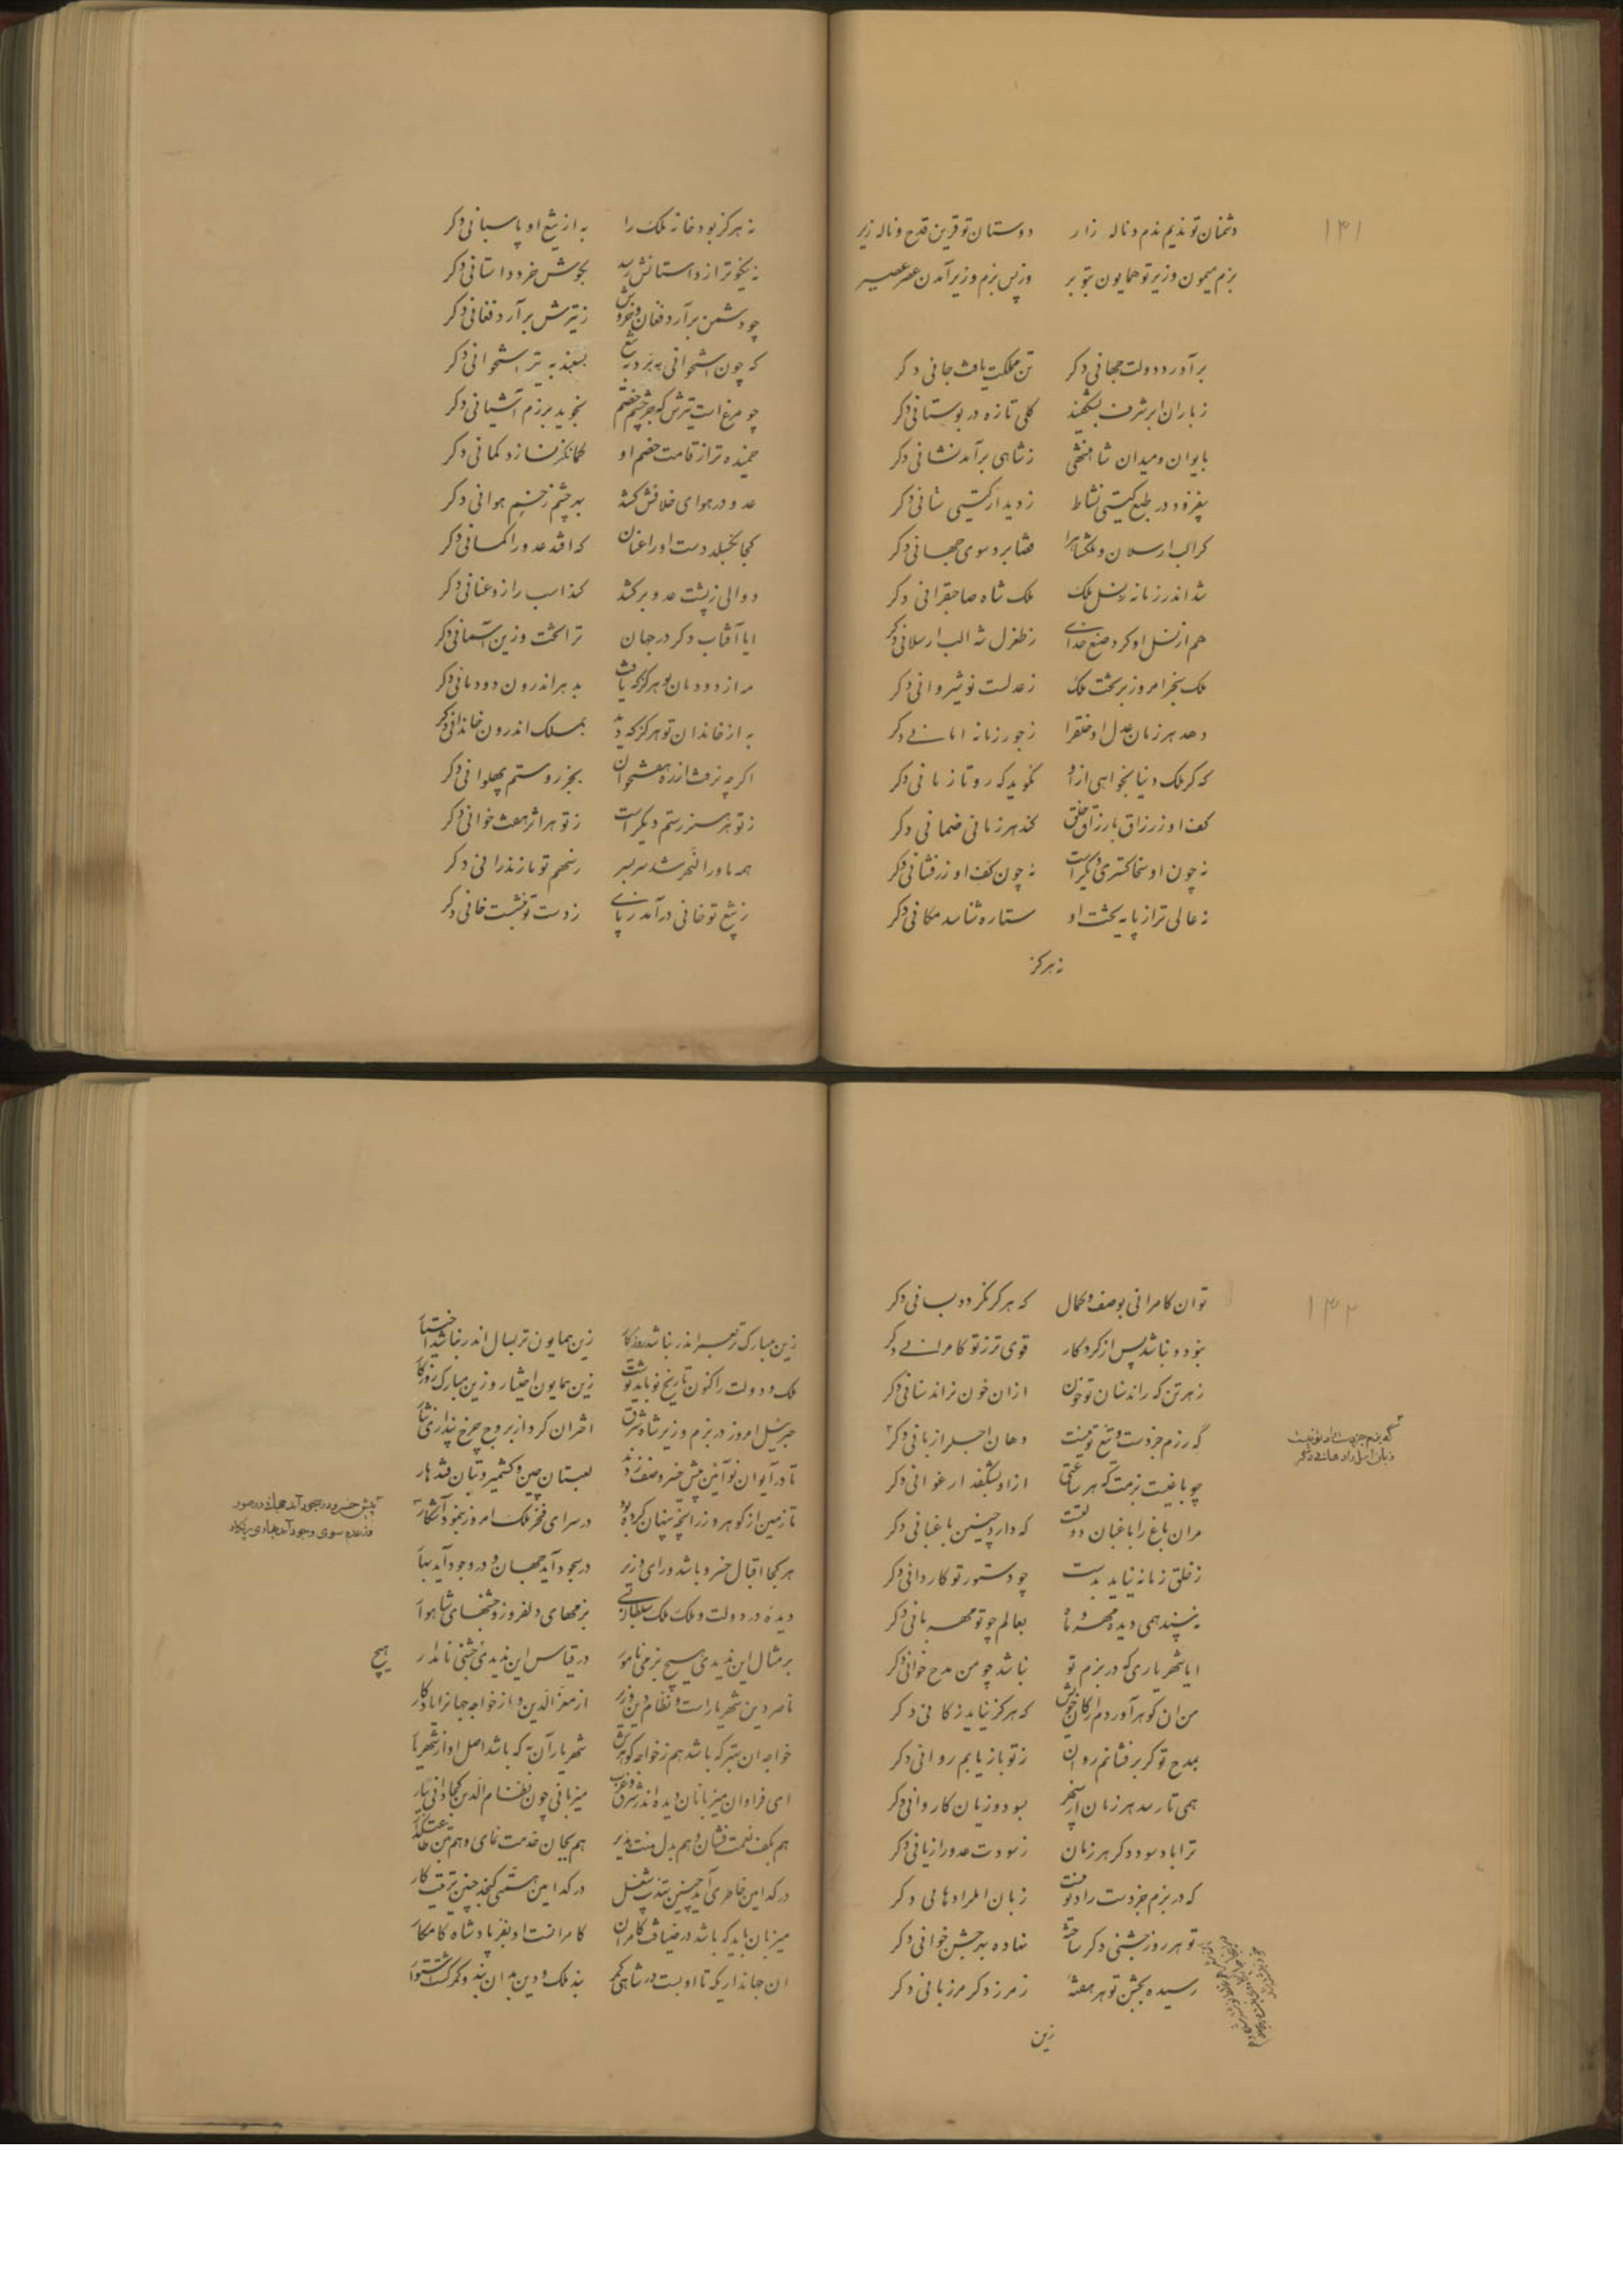 ۱۴۱
دشمنان تو ندیم ندم و ناله زار دوستان تو قرین قدح و ناله زیر
بزم میمون وزیر تو همایون بتو بر وز پس بزم وزیر آمدن عصر عصیر
برآورد دولت جهانی دکر تن مملکت یافت جانی دکر
ز باران ابر شرف بشکفید کلی تازه در بوستانی دکر
بایوان و میدان شاهنشهی ز شاهی برآمد نشانی دکر
بیفزود در طبع کیتی نشاط ز دیدار کیتی ستانی دکر
کر الب ارسلان و ملکشاه را قضا برد سوی جهانی دکر
شد اندر زمانه ز نسل ملک ملک شاه صاحبقرانی دکر
هم از نسل او کرد صنع خدای ز طغرل شه الب ارسلانی دکر
ملک سنجر امروز بر تخت ملک ز عدلست نوشیروانی دکر
دهد هر زمان عدل او خلق را ز جور زمانه امانی دکر
که کر ملک دنیا بخواهی ازو نکوید که رو تا زمانی دکر
کف او ز رزاق بارزاق خلق کند هر زمانی ضمانی دکر
نه چون او سخاکستری دیکر است نه چون کف او زرفشانی دکر
نه عالی تر از پایه تخت او ستاره شناسد مکانی دکر
نه هرکز
نه هرکز بود خانه ملک را به از تیغ او پاسبانی دکر
نه نیکوتر از داستانش رسد بکوش خرد داستانی دکر
چو دشمن برآرد فغان و خروش ز تیرش برآرد فغانی دکر
که چون استخوانی ببرد به تیغ بسنبد به تیر استخوانی دکر
چو مرغ است تیرش که جز چشم خصم نجوید برزم آشیانی دکر
خمیده تر از قامت خصم او کمانکر نسازد کمانی دکر
عدو در هوای خلافش کشد بهر چشم زخمی هوانی دکر
کجا بکسلد دست او را عنان که افتد عدو را کمانی دکر
دوالی ز پشت عدو برکشد کند اسب را زو عنانی دکر
ایا آفتاب دکر در جهان ترا تخت و زین آسمانی دکر
مه از دودمان تو هرکز که یافت بدهر اندرون دودمانی دکر
به از خاندان تو هرکز که دید بملک اندرون خاندانی دکر
اکر چه نرفت از ره هفتخوان بجز روستم پهلوانی دکر
ز تو هر هنر رستم دیکر است ز تو هر اثر هفت خوانی دکر
همه ماوراالنهر شد سربسر ز سهم تو مازندرانی دکر
ز تیغ تو خانی درآمد ز پای ز دست تو بنشست خانی دکر
۱۴۲
تو ان کامرانی بوصف و کمال که هرکز نکردد بسانی دکر
نبود و نباشد پس از کردکار قوی تر ز تو کامرانی دکر
ز هر تن که راند سنان تو خون ازان خون نراند سنانی دکر
که رزم جز دست و تیغ تو نیست دهان اجل را زبانی دکر
چو باغیست بزمت که هر ساعتی ازاو بشکفد ارغوانی دکر
مران باغ را باغبان دولتست که دارد چنین باغبانی دکر
ز خلق زمانه نیاید بدست چو دستور تو کاردانی دکر
نبیند همی دیده مهر و ماه بعالم چو تو مهربانی دکر
ایا شهریاری که در بزم تو نباشد چو من مدح خوانی دکر
من ان کوهر آوردم از کان خویش که هرکز نیاید ز کانی دکر
بمدح تو کر برفشانم روان ز تو بازیابم روانی دکر
همی تا رسد هر زمان از سپهر بسود و زیان کاروانی دکر
ترا باد سود دکر هر زمان ز سودت عدو را زیانی دکر
که در بزم جز دست راد تو نیست زبان امل را دهانی دکر
تو هر روز جشنی دکر ساخته نهاده بهر جشن خوانی دکر
رسیده بجشن تو هر هفته ز مرز دکر مرزبانی دکر
زین
که بزم جز دست راد تو نیست
زبان امل را دهانی دکر
زین مبارکتر سفر اندر نباشد روزکار زین همایون تر بسال اندر نباشد اختیار
ملک و دولت را کنون تاریخ نو باید نوشت زین همایون اختیار و زین مبارک روزکار
جبرئیل امروز در بزم وزیر شاه شرق اختران کرد از بروج چرخ پنداری نثار
تا در آیوان نو آئین پیش خسرو صف زدند لعبتان چین و کشمیر و بتان قندهار
تا زمین از کوهر و زر انچه پنهان کرده بود در سرای فخر ملک امروز بنمود آشکار
هر کجا اقبال خسرو باشد و رای وزیر در سجود آید جهان و در وجود آید بهار
دیده در دولت و ملک ملک سلطانی بزمهای دلفروز و جشنهای شاهوار
بر مثال این ندیدی هیچ بزمی نامور در قیاس این ندیدی جشنی نامدار
هیچ
ناصر دین شهریار است و نظام دین وزیر از معزالدین و از خواجه جهانرا یادکار
خواجه ان بهتر که باشد هم ز خواجه کوهرش شهریار آن به که باشد اصل او از شهریار
ای فراوان میزبانان دیده اندر شرق و غرب میزبانی چون نظام الدین کجا دانی بیار
هم بکف نعمت فشان و هم بدل منت پذیر هم بجان خدمت نمای و هم بتن طاعت کذار
در کدامین خاطری آید چنین تهذیب شغل در کدامین همتی کنجد چنین ترتیب کار
میزبان باید که باشد در ضیافت کامران کامرانست او بفر پادشاه کامکار
ان جهانداری که تا او بست در شاهی کمر بند ملک و دین بدان بند و کمر کشت استوار
پیش خسرو در سجود آید جهان